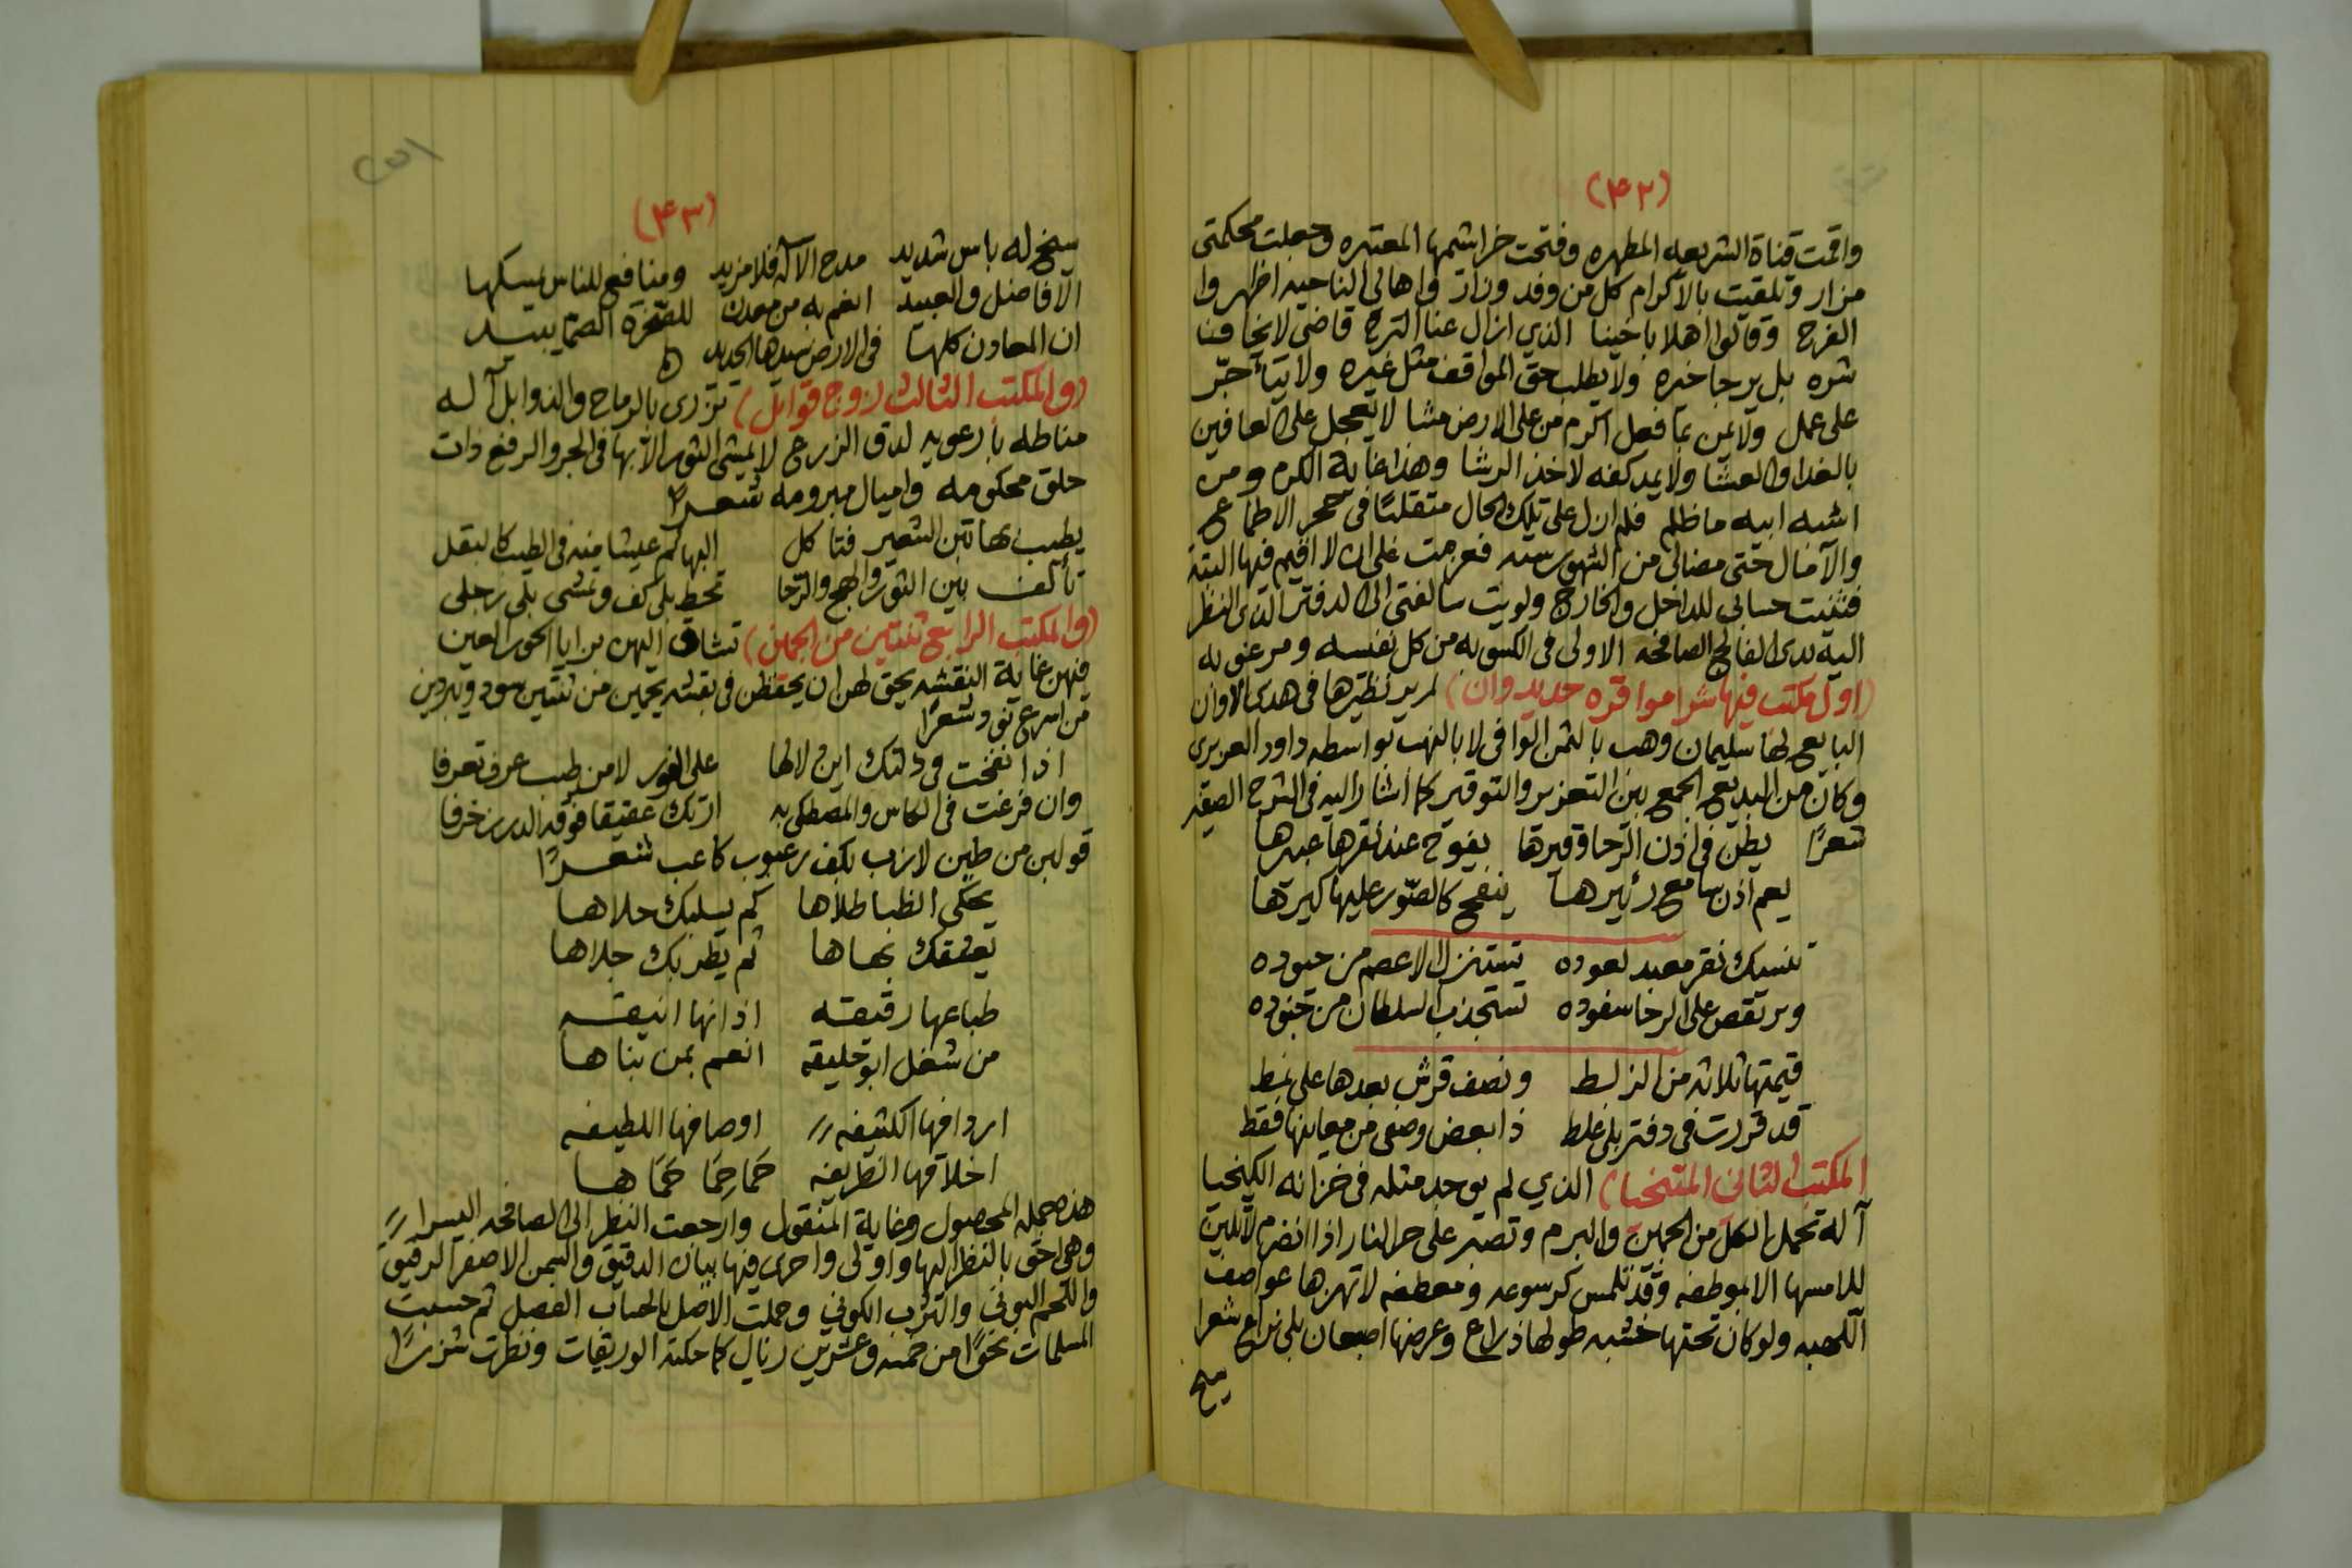 (٤٢)
واقمت قناة الشريعه المطهره وفتحت خراشمها المعتبره وجعلت محكمتى
مزار وتلقيت بالاكرام كل من وفد وزار واهالى الناحيه اظهروا
الفرح وقالوا اهلا باخينا الذي ازال عنا الترح قاضى لا يخافنا
شره بل يرجا خيره ولا يطلب حق المواقف مثل غيره ولا يتأخر
على عمل ولا يمن بما فعل اكرم من على الارض مشا لا يعجل على العافين
بالغدا والعشا ولا يمد كفه لاخذ الرشا وهذا غاية الكرم ومن
اشبه ابيه ما ظلم فلم ازل على تلك الحال متقلبًا فى الاطماع
والآمال حتى مضالى من الشهور سته فعزمت على ان لا اقيم فيها البته
فثنيت حسابى للداخل والخارج ولويت سالفتى الى الدفتر الذى النظر
اليه يدى الفالج الصافحه الاولى فى الكسوبه من كل نفيسه ومرغوبه
(اول مكتب فيها شرا مواقره حديد وان) لم ير نظيرها فى هدى الاوان
البايع لها سليمان وهب بالثمن الوافى لا بالنهب بواسطه داود العزيرى
وكان من البديع الجمع بين التعزير والتوقير كما اشار اليه فى الشرح الصغير
شعرًا يطن فى اذن الرحا وقيرها يفوح عند نقرها عبيرها
يعم اذن سامع زئيرها ينفخ كالصور عليها كيرها
تنسيك نقر معبد لعوده تستنزل الاعصم من حيوده
ويرتقص على الرخا سفوده تستجذب السلطان من جنوده
قيمتها ثلاثه من الزلط ونصف قرش بعدها على نمط
قد قررت فى دفتر بلى غلط ذا بعض وصفى من معانيها فقط
(المكتب الثانى المنتخبا) الذي لم يوجد مثله فى خزانه الكيخيا
آله تحمل الكل من الجبن والبرم وتصبر على حر النار اذا انضرم لا تلين
للامسها الا بموطفه وقد تلمس كرسوعه ومعطفه لا تهزها عواصف
اللهبه ولو كان تحتها خشبه طولها ذراع وعرضها اصبعان بلى نزاع شعرا
سيخ
(٤٣)
سيخ له باس شديد مدح الآله فلا مزيد ومنافع للناس يمسكها
الافاضل والعبيد انعم به من معدن للصخرة الصما يبيد
ان المعاون كلها فى الارض سيدها الحديد
(والمكتب الثالث زوج قوابل) تزرى بالرماح والذوابل آله
مناطه بارعويه لدق الزرع لا يمشى الثور الا بها فى الجر والرفع ذات
حلق محكومه واميال مبرومه شعرا
يطيب بهاتين الشعير فتاكل البهائم عيشا منه فى الطيب كالبقل
تألف بين الثور والبهج والرحا تحط بلى كف وتمشى بلى رجلى
(والمكتب الرابع ثنتين من الجبن) تشاق اليهن برايا الحور العين
فيهن غاية النقشه يحق لهن ان يحفظن فى بقشه يحمين من ثنتين سود ويبردين
من اسرع نفود شعرًا
اذا نفخت فى دلتك ابن لالها على الفور لا من طيب عرف تعرفا
وان فرغت فى الكاس والمصطكى به ارتك عقيقا فوقه الدر زخرفا
قولبن من طين لازب بكف رعبوب كاعب شعرًا
يحكى الظبا طلاها كم يسليك حلاها
تعشقك بهاها ثم يطربك جلاها
طباعها رقيقه اذانها انيقه
من شغل ابو خليقه انعم بمن بناها
اردافها الكثيفه اوصافها اللطيفه
اخلاقها الظريفه حَمَا حِمَا حَمَاها
هذه جمله المحصول وغاية المنقول وارجعت النظر الى الصافحه اليسرا
وهى احق بالنظر اليها واولى واحرى فيها بيان الدقيق والسمن الاصفر الرقيق
واللحم البونى والشرب الكونى وحملت الاصل بالحساب الفصل ثم حسبت
المسلمات نحوًا من خمسه وعشرين ريال كما حكته الوريقات ونظرت شزرًا